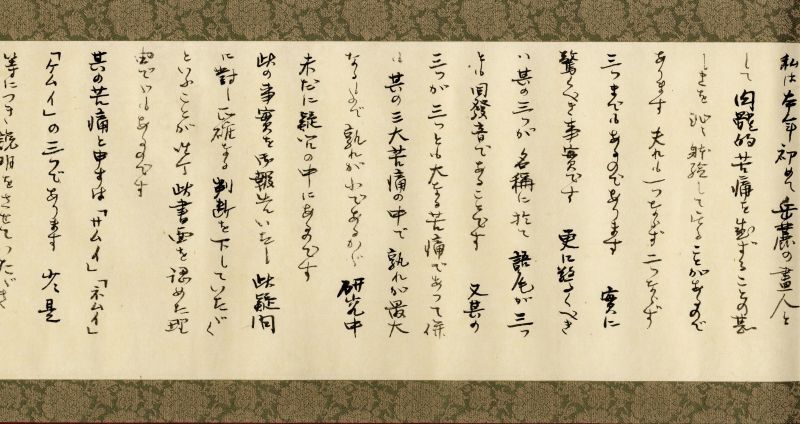 私は本年初めて岳麓の畫人と
して肉體的苦痛を感ずることの甚
しきを沁々軆驗していることがあるので
あります 夫れも一つならず二つならず
三つまでもあるのであります 實に
驚くべき事實です 更に驚くべき
は其の三つが名稱に於て語尾が三つ
とも同發音であることです 又其の
三つが三つとも大なる苦痛であつて併
も其の三大苦痛の中で孰れが最大
なるもので孰れが小であるかが研究中
未だに疑問の中にあるのです
此の事實を御報告いたし此疑問
に對し正確なる判斷を下していたゞく
といふことが此書面を認めた理
由でもあるのです
其の苦痛と申すは「サムイ」「ネムイ」
「ケムイ」の三つであります 少々是
等につき説明をさせていたゞき